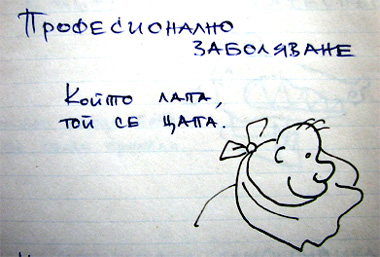 Професионално
заболяване
Който лапа,
той се цапа.